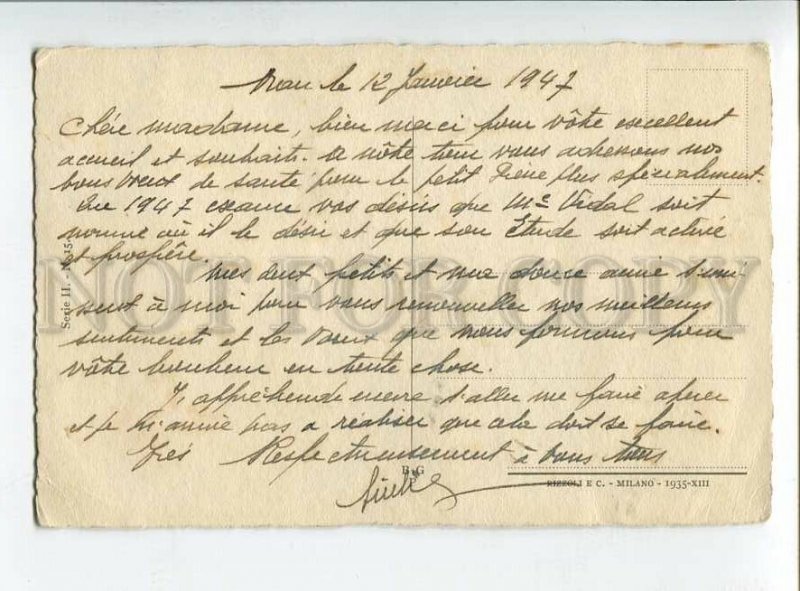 Oran le 12 Janvier 1947
Chère madame, bien merci pour vôtre excellent
accueil et souhaits. A nôtre tour vous adressons nos
bons voeux de santé pour le petit Pierre plus spécialement.
Que 1947 exauce vos désirs que Me Vidal soit
nommé où il le désire et que son Etude soit activée
et prospère.
Mes deux petits et ma douce amie s'unis-
sent à moi pour vous renouveller nos meilleurs
sentiments et les voeux que nous formons pour
vôtre bonheur en toute chose.
J'appréhende encore d'aller me faire opérer
et je n'arrive pas a réaliser que cela doit se faire.
Très Respectueusement à vous tous
Serie II. - N. 15
B G
P
RIZZOLI E C. - MILANO - 1935-XIII
NOT FOR COPY